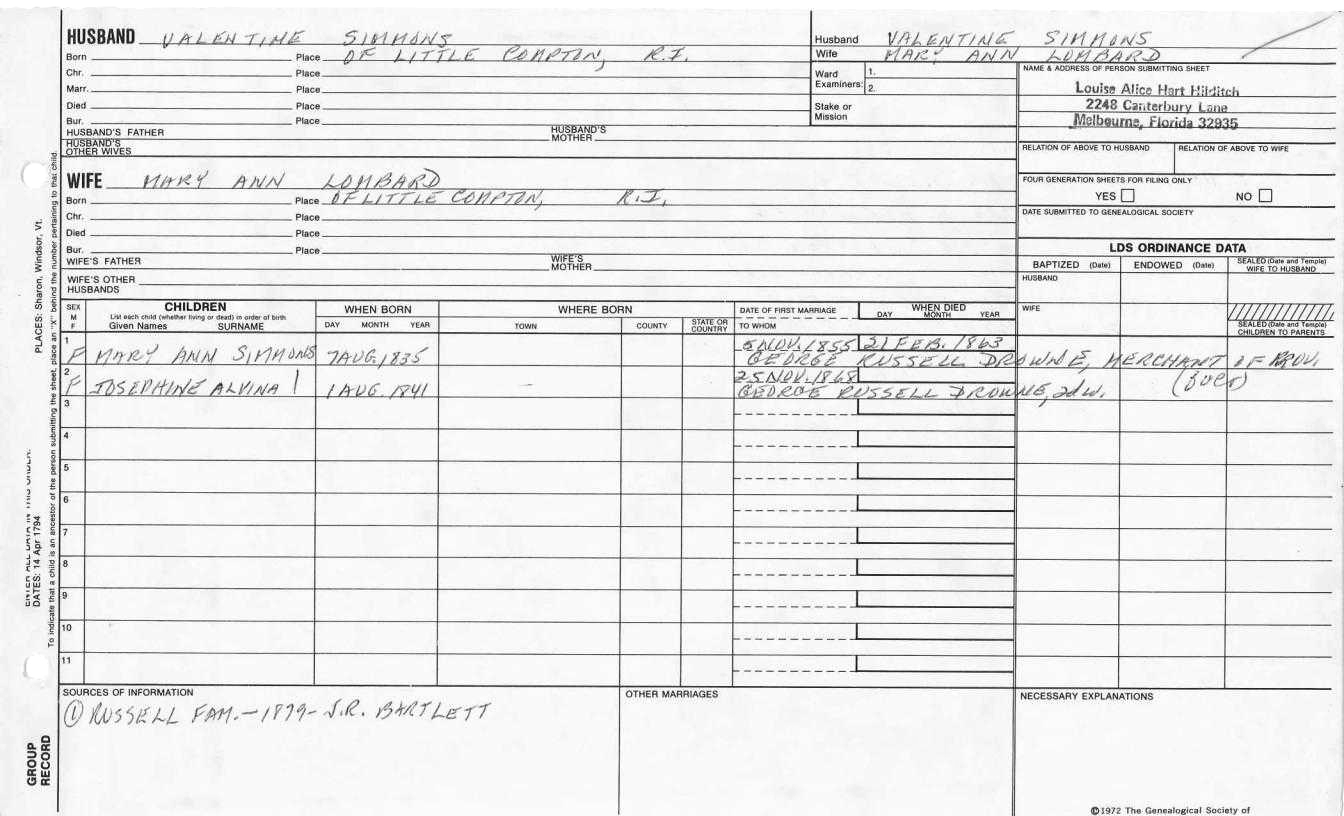 HUSBAND VALENTINE SIMMONS
Born Place OF LITTLE COMPTON, R.I.
Chr. Place
Marr. Place
Died Place
Bur. Place
HUSBAND'S FATHER HUSBAND'S MOTHER
HUSBAND'S OTHER WIVES
WIFE MARY ANN LOMBARD
Born Place OF LITTLE COMPTON, R.I.
Chr. Place
Died Place
Bur. Place
WIFE'S FATHER WIFE'S MOTHER
WIFE'S OTHER HUSBANDS
Husband VALENTINE SIMMONS
Wife MARY ANN LOMBARD
Ward Examiners: 1.
2.
Stake or Mission
NAME & ADDRESS OF PERSON SUBMITTING SHEET
Louise Alice Hart Hilditch
2248 Canterbury Lane
Melbourne, Florida 32935
RELATION OF ABOVE TO HUSBAND RELATION OF ABOVE TO WIFE
FOUR GENERATION SHEETS FOR FILING ONLY
YES NO
DATE SUBMITTED TO GENEALOGICAL SOCIETY
LDS ORDINANCE DATA
BAPTIZED (Date) ENDOWED (Date) SEALED (Date and Temple) WIFE TO HUSBAND
HUSBAND
WIFE
SEALED (Date and Temple) CHILDREN TO PARENTS
SEX M F
CHILDREN
List each child (whether living or dead) in order of birth
Given Names SURNAME
WHEN BORN
DAY MONTH YEAR
WHERE BORN
TOWN COUNTY STATE OR COUNTRY
DATE OF FIRST MARRIAGE
TO WHOM
WHEN DIED
DAY MONTH YEAR
1 F MARY ANN SIMMONS 7 AUG. 1835 5 NOV. 1855 21 FEB. 1863
GEORGE RUSSELL DROWNE, MERCHANT OF PROV.
2 F JOSEPHINE ALVINA 1 AUG. 1841 25 NOV. 1868
GEORGE RUSSELL DROWNE, 2d w.
3
4
5
6
7
8
9
10
11
SOURCES OF INFORMATION
① RUSSELL FAM.-1879-J.R. BARTLETT
OTHER MARRIAGES
NECESSARY EXPLANATIONS
©1972 The Genealogical Society of
PLACES: Sharon, Windsor, Vt.
DATES: 14 Apr 1794
To indicate that a child is an ancestor of the person submitting the sheet, place an "X" behind the number pertaining to that child.
GROUP RECORD